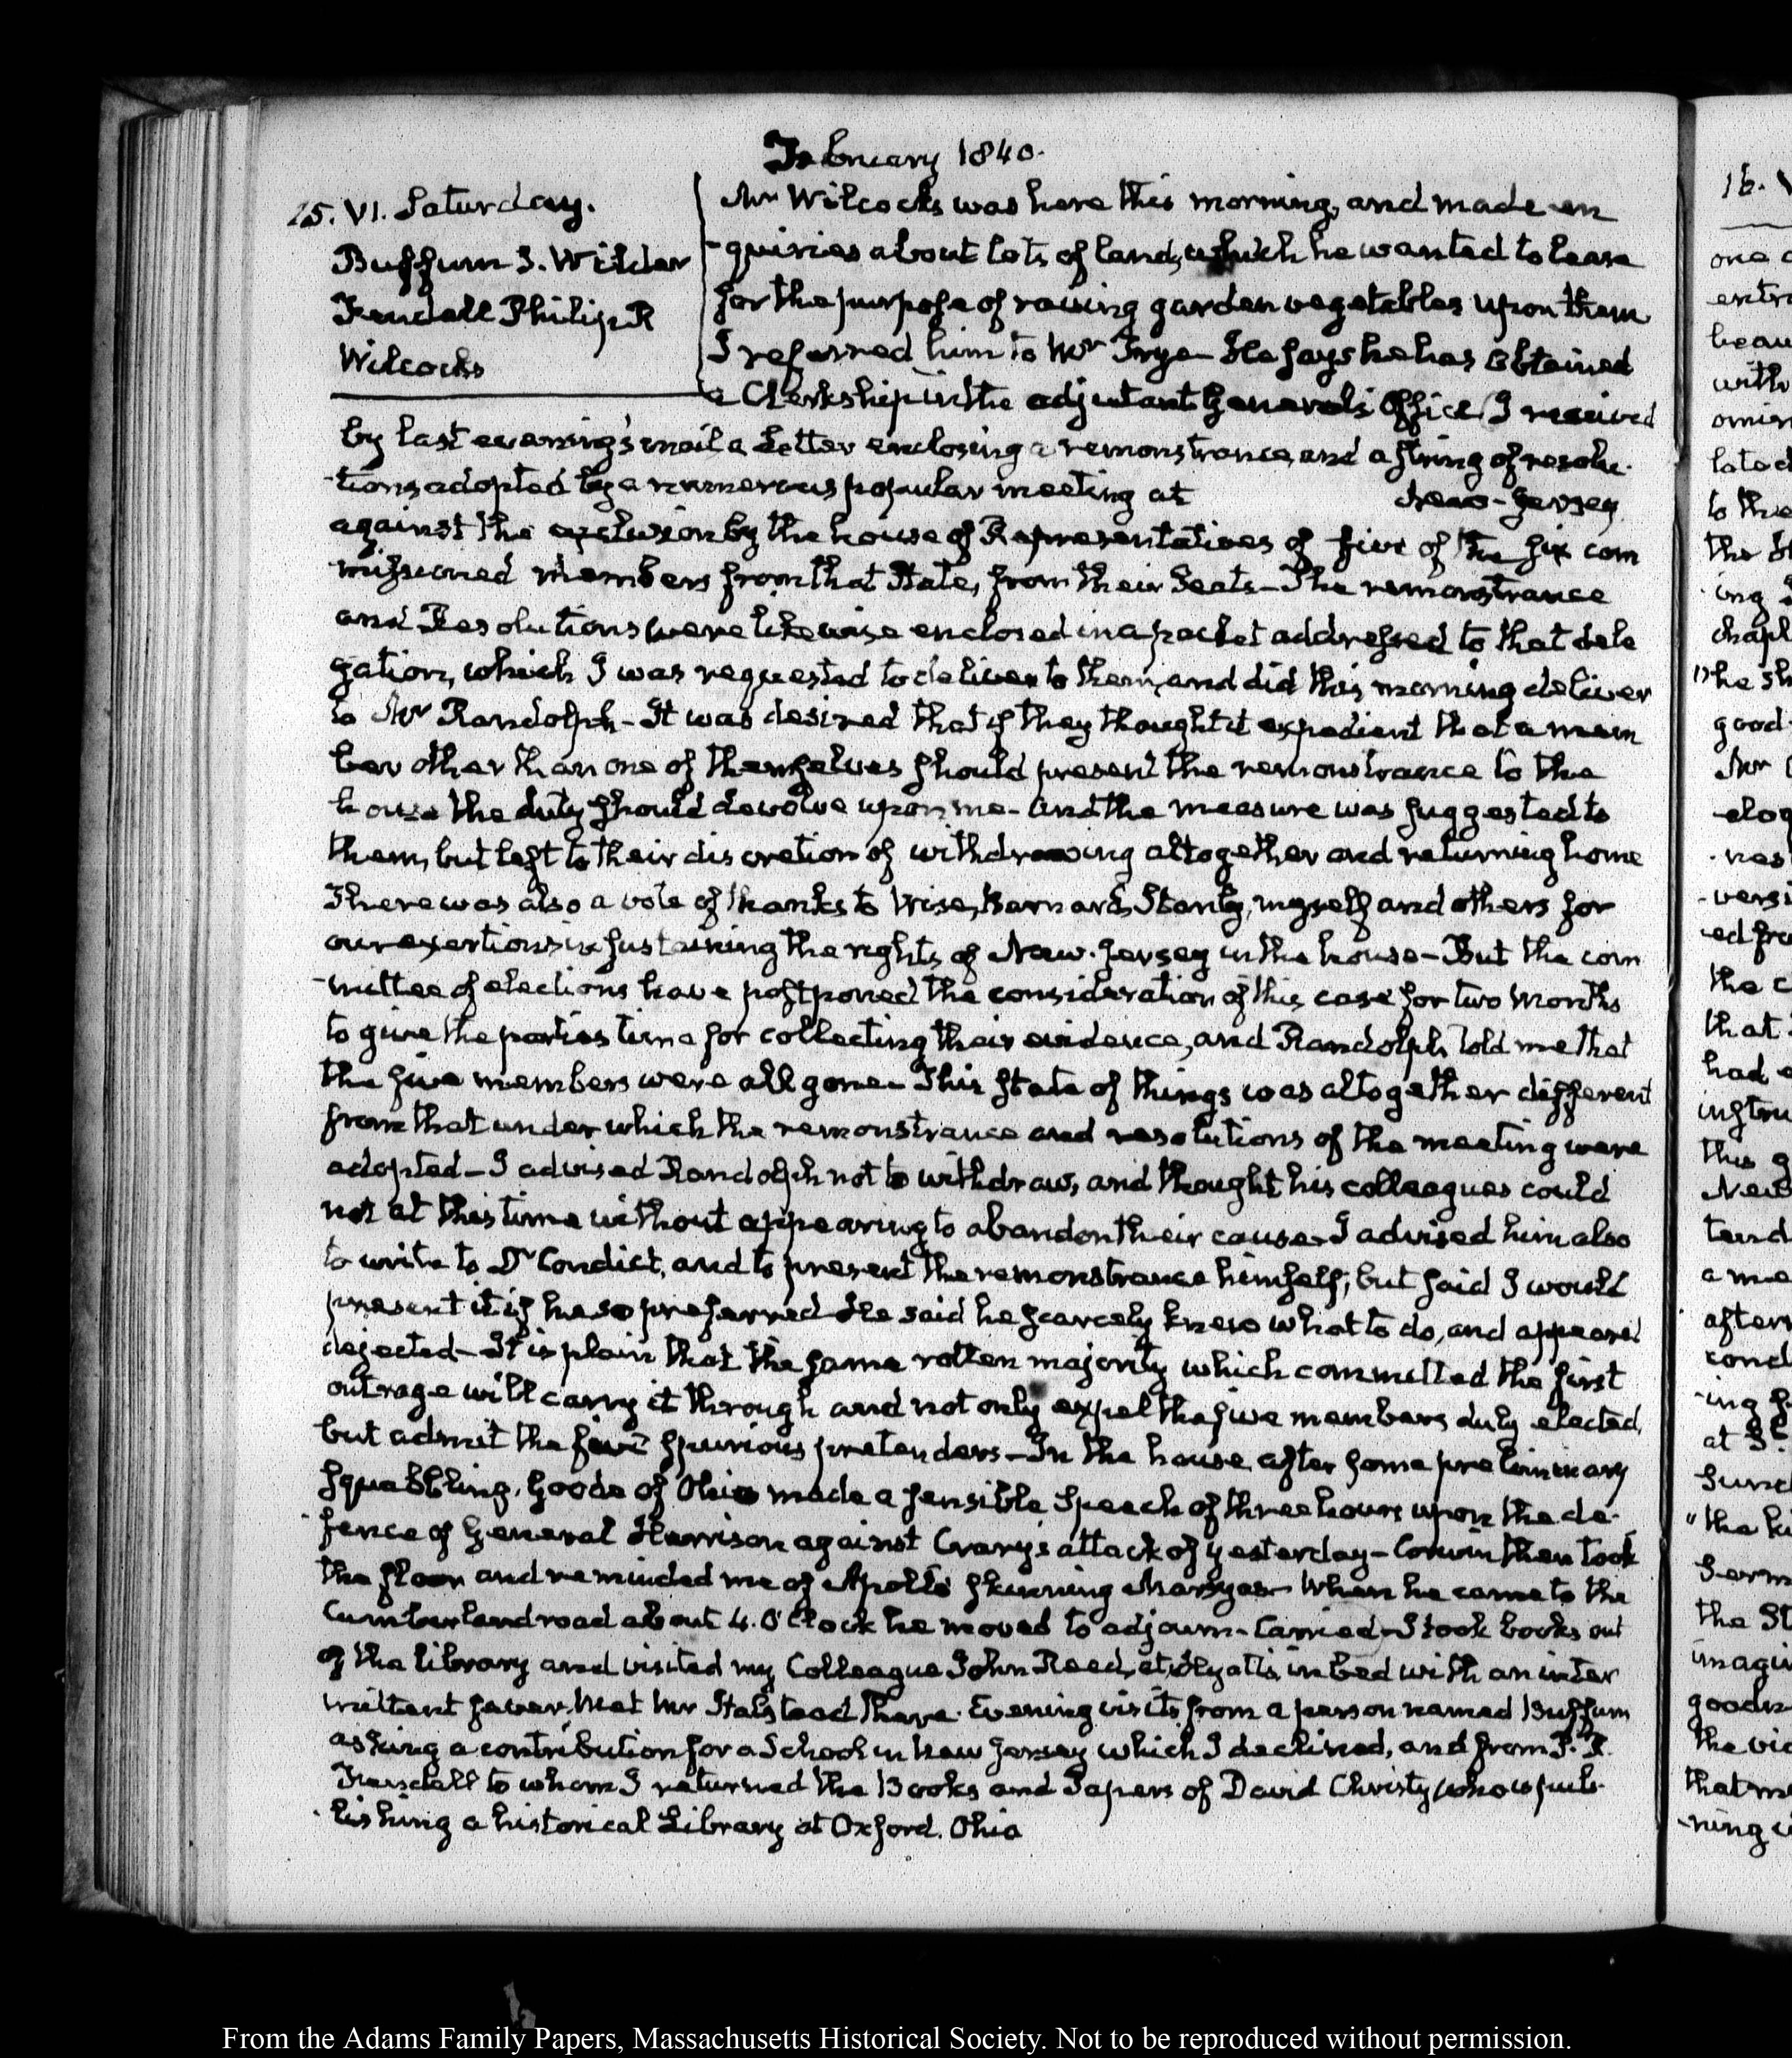 February 1840.
15. VI. Saturday.
Buffum J. Wilder
Kendall Philip R
Wilcocks
Mr Wilcocks was here this morning, and made en
-quiries about lots of land, which he wanted to lease
for the purpose of raising garden vegetables upon them
I referred him to Mr Frye- He says he has obtained
a Clerkship in the adjutant General's Office I received
by last evening's mail a Letter enclosing a remonstrance, and a string of resolu-
-tions adopted by a numerous popular meeting at New-Jersey
against the exclusion by the house of Representatives of five of the six com
missioned members from that State, from their Seats- The remonstrance
and Resolutions were likewise enclosed in a packet addressed to that dele
gation, which I was requested to deliver to them, and did this morning deliver
to Mr Randolph- It was desired that if they thought it expedient that a mem
ber other than one of themselves should present the remonstrance to the
house the duty should devolve upon me- and the measure was suggested to
them, but left to their discretion of withdrawing altogether and returning home
There was also a vote of thanks to Wise, Barnard, Stanly, myself and others for
our exertions in sustaining the rights of New-Jersey in the house- But the com
-mittee of elections have postponed the consideration of this case for two months
to give the parties time for collecting their evidence, and Randolph told me that
the five members were all gone- This state of things was altogether different
from that under which the remonstrance and resolutions of the meeting were
adopted- I advised Randolph not to withdraw, and thought his colleagues could
not at this time without appearing to abandon their cause- I advised him also
to write to Dr Condict, and to present the remonstrance himself; but said I would
present it if he so preferred- He said he scarcely knew what to do, and appeared
dejected- It is plain that the same rotten majority which committed the first
outrage will carry it through and not only expel the five members duly elected,
but admit the five spurious pretenders- In the house after some preliminary
squabbling, Goode of Ohio made a sensible Speech of three hours upon the de-
-fence of General Harrison against Crary's attack of yesterday- Corwin then took
the floor and reminded me of Apollo skinning Marsyas- When he came to the
Cumberland road about 4. O'Clock he moved to adjourn- Carried- I took books out
of the library and visited my Colleague John Reed, at Hyatt's in bed with an inter
mittent fever. Met Mr Halstead there. Evening visits from a person named Buffum
asking a contribution for a School in New Jersey which I declined, and from P. R.
Kendall to whom I returned the Books and Papers of David Christy who is pub-
-lishing a historical Library at Oxford. Ohio
16.
one
beau
with
to the
good
Mr
the
that
had
this
a me
at
the
From the Adams Family Papers, Massachusetts Historical Society. Not to be reproduced without permission.